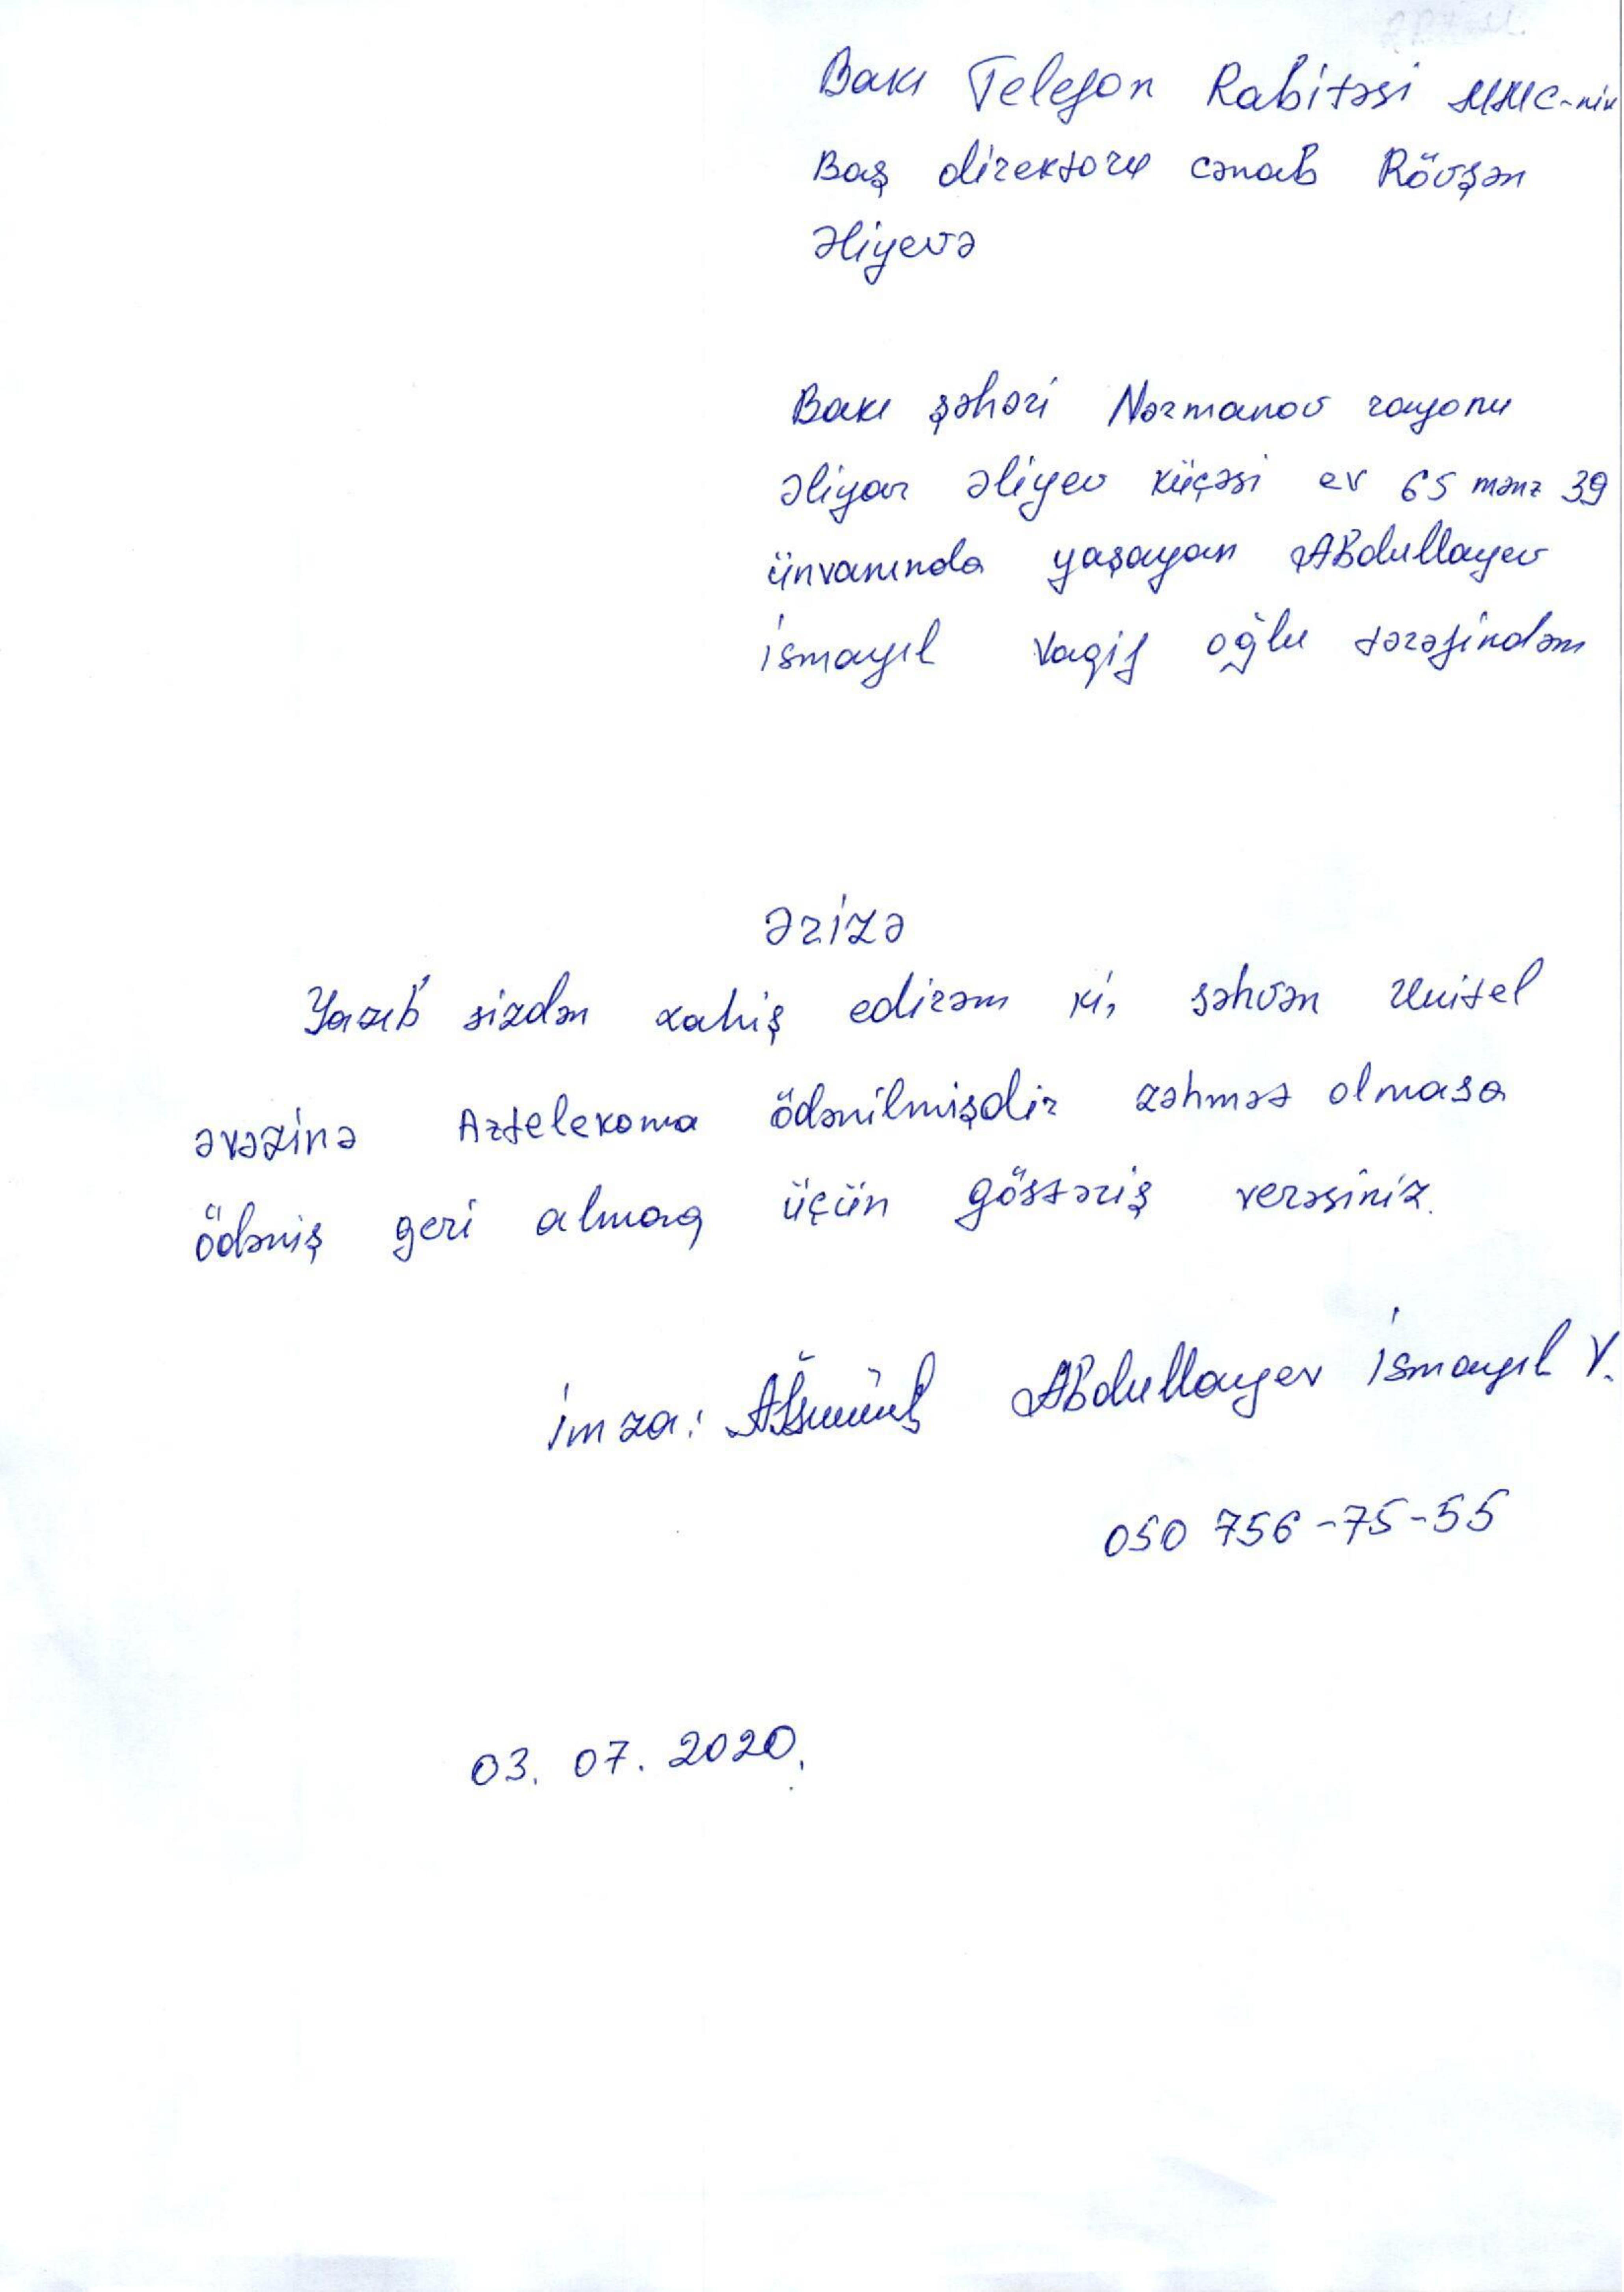 Bakı Telefon Rabitəsi MMC-nin
Baş direktoru cənab Rövşən
Əliyevə
Bakı şəhəri Nərmanov rayonu
Əliyar Əliyev küçəsi ev 65 mənz 39
ünvanında yaşayan Abdullayev
İsmayıl Vaqif oğlu tərəfindən
Ərizə
Yazıb sizdən xahiş edirəm ki, səhvən Unitel
əvəzinə Aztelekoma ödənilmişdir zəhmət olmasa
ödəniş geri almaq üçün göstəriş verəsiniz.
İmza: Abdullayev İsmayıl V.
050 756-75-55
03. 07. 2020.